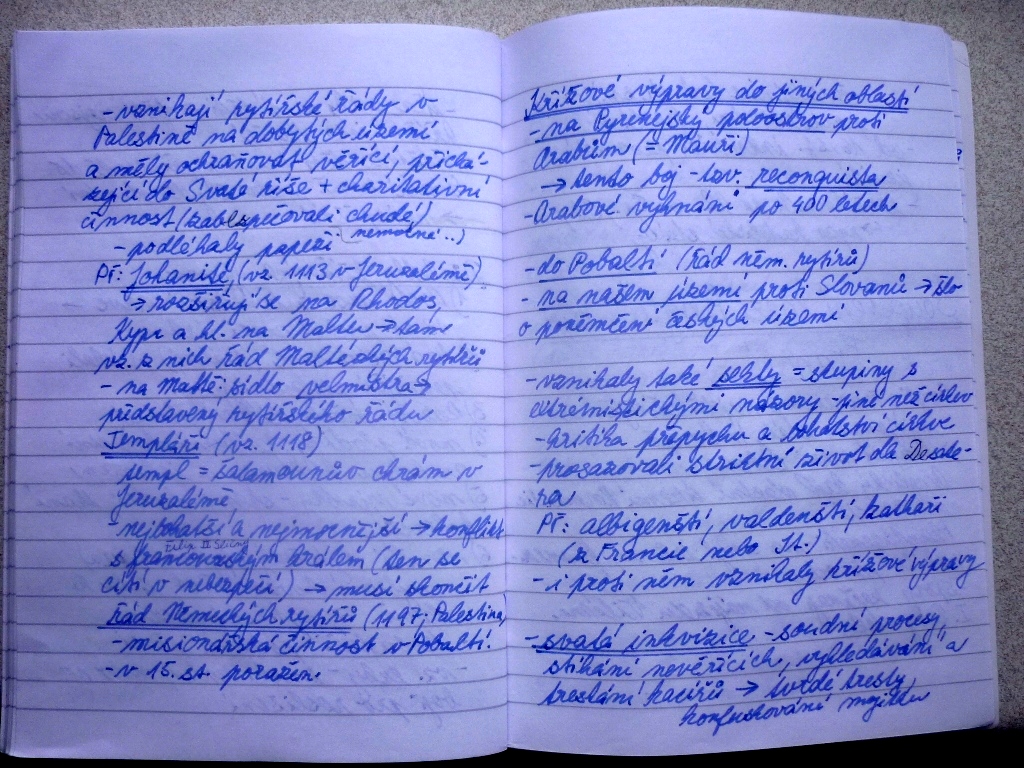 - vznikají rytířské řády v
Palestině na dobytých území
a měly ochraňovat věřící, přichá-
zející do Svaté říše + charitativní
činnost (zabezpečovali chudé)
nemocné..)
- podléhaly papeži
Př: Johanité, (vz. 1113 v Jeruzalémě)
→ rozšiřují se na Rhodos,
Kypr a hl. na Maltu → tam
vz. z nich řád Maltézských rytířů
- na Maltě: sídlo velmistra →
představený rytířského řádu
Templáři (vz. 1118)
templ = Šalamounův chrám v
Jeruzalémě,
- nejbohatší a nejmocnější → konflikt
Filip II. Sličný
s francouzským králem (ten se
cítí v nebezpečí) → musí skončit
Řád Německých rytířů (1197; Palestina)
- misionářská činnost v Pobaltí.
- v 15. st. poražen.
Křížové výpravy do jiných oblastí
- na Pyrenejský poloostrov proti
Arabům (= Mauři)
→ tento boj - tzv. reconquista
- Arabové vyhnáni po 400 letech
- do Pobaltí (řád něm. rytířů)
- na našem území proti Slovanů → šlo
o poněmčení českých území
- vznikaly také sekty = skupiny s
extrémistickými názory - jiné než církev
- kritika přepychu a bohatství církve
- prosazovali striktní život dle Desate-
ra
Př: albigenští, valdenští, kathaři
(z Francie nebo It.)
- i proti něm vznikaly křížové výpravy
- svatá inkvizice - soudní procesy,
stíhání nevěřících, vyhledávání a
trestání kacířů → tvrdé tresty,
konfiskování majetku